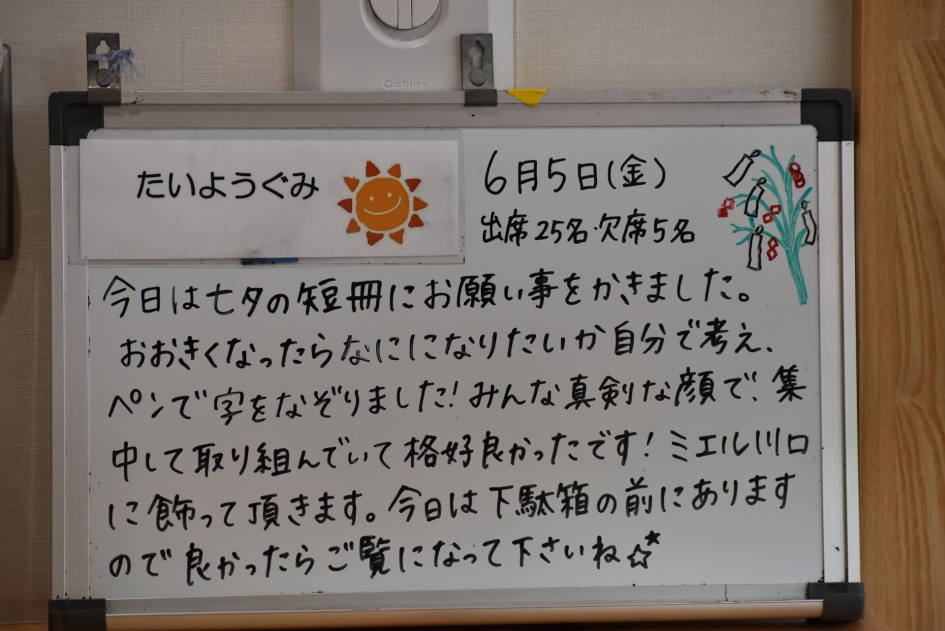 Cablex
たいようぐみ
6月5日(金)
出席25名・欠席5名
今日は七夕の短冊にお願い事をかきました。
おおきくなったらなにになりたいか自分で考え、
ペンで字をなぞりました！みんな真剣な顔で、集
中して取り組んでいて格好良かったです！ミエル川口
に飾って頂きます。今日は下駄箱の前にあります
ので良かったらご覧になって下さいね☆